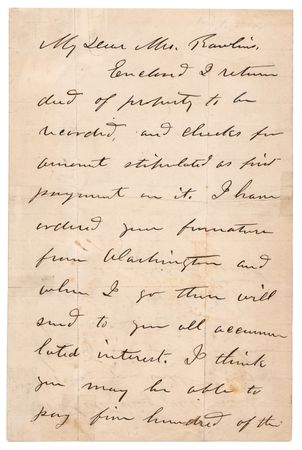 My Dear Mrs. Rawlins,
Enclosed I return
deed of property to be
recorded, and checks for
amount stipulated as first
payment on it. I have
ordered your furniture
from Washington and
when I go there will
send to you all accumu
lated interest. I think
you may be able to
pay five hundred of the